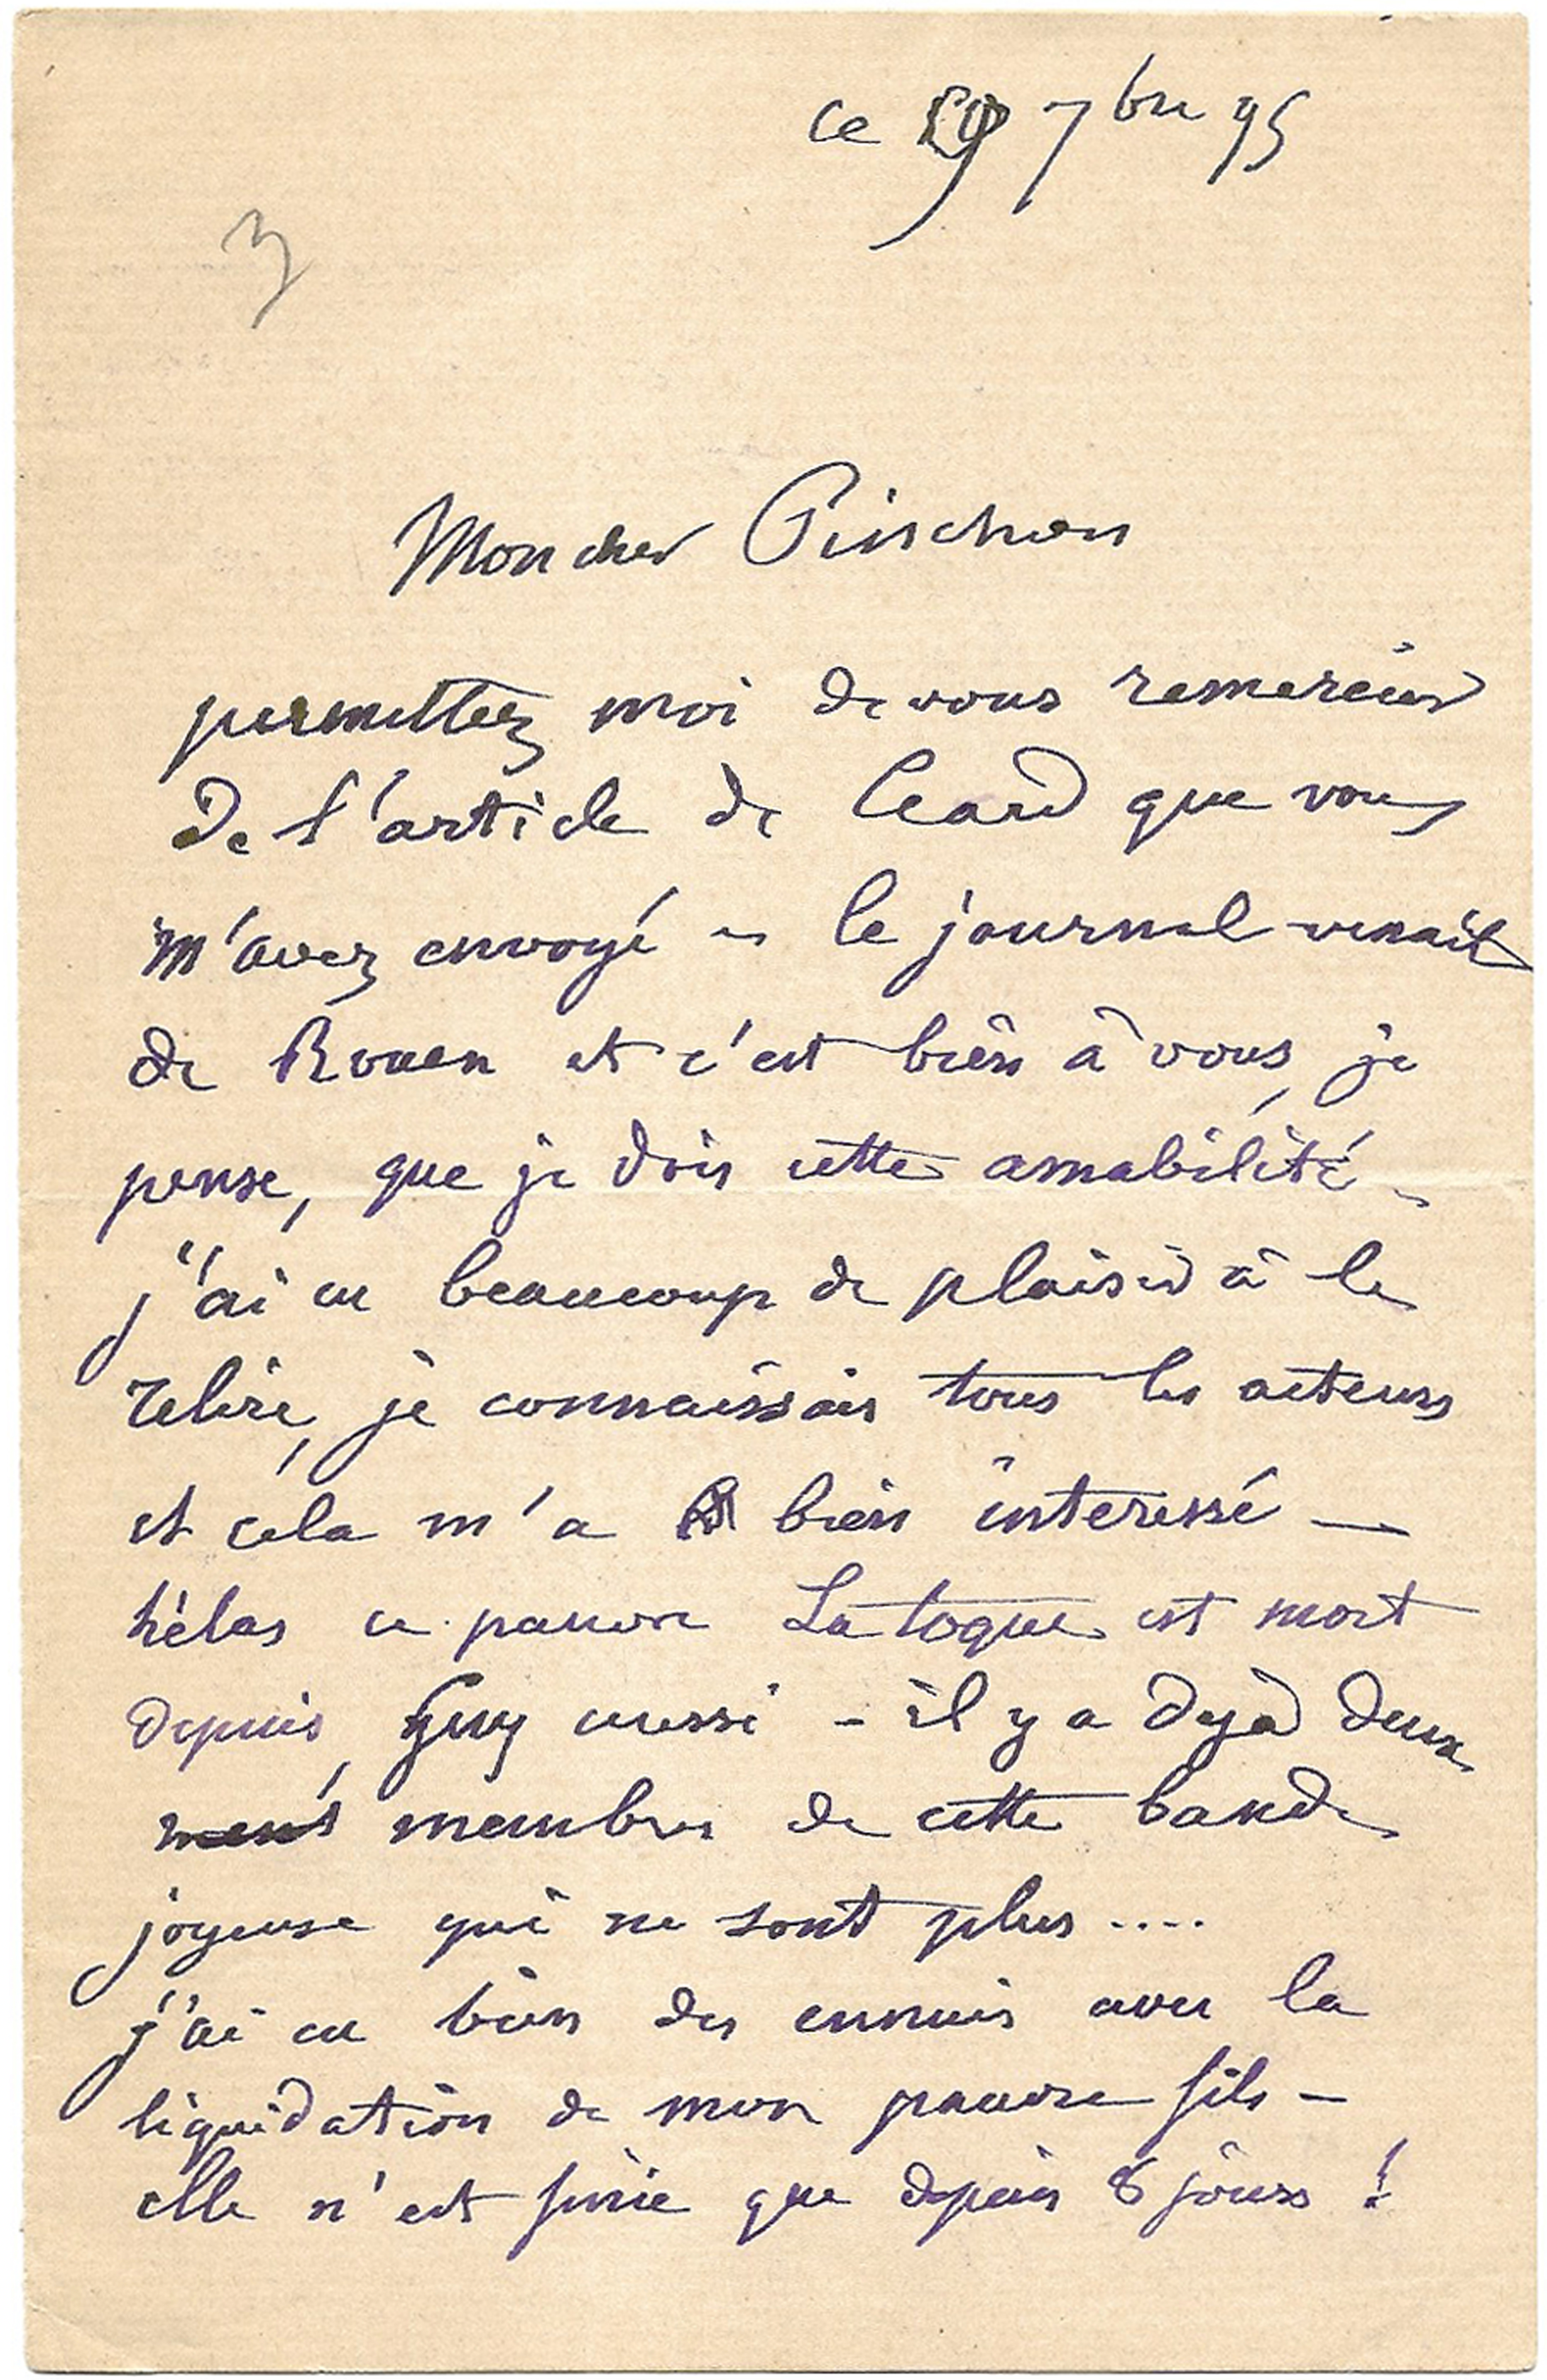 ce 29 7bre 95
3
Mon cher Pinchon
permettez moi de vous remercier
de l'article de Ceard que vous
m'avez envoyé - le journal venait
de Rouen et c'est bien à vous, je
pense, que je dois cette amabilité -
j'ai eu beaucoup de plaisir à le
relire, je connaissais tous les acteurs
et céla m'a bien interessé —
hélas ce pauvre La toque est mort
depuis, Guy aussi - il y a dejà deux
membres de cette bande
joyeuse qui ne sont plus ....
j'ai eu bien des ennuis avec la
liquidation de mon pauvre fils -
elle n'est finie que depuis 8 jours !